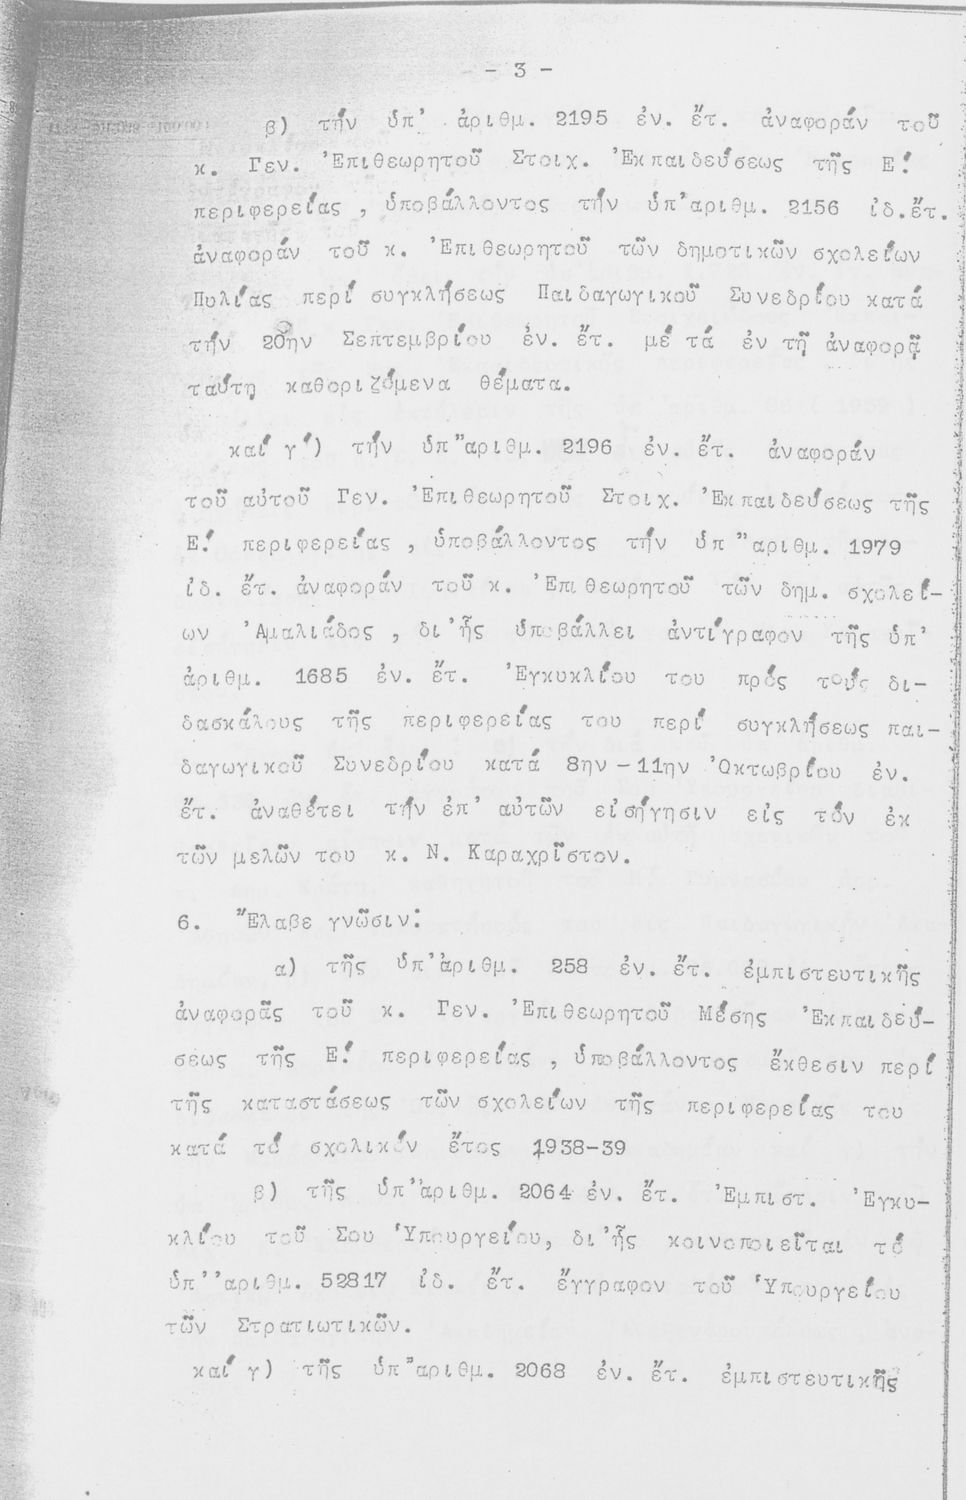 - 3 -
β) τήν ὑπ' ἀριθμ. 2195 ἐν. ἔτ. ἀναφοράν τοῦ
κ. Γεν. Ἐπιθεωρητοῦ Στοιχ. Ἐκπαιδεύσεως τῆς Ε΄.
περιφερείας , ὑποβάλλοντος τήν ὑπ'αριθμ. 2156 ἰδ.ἔτ.
ἀναφοράν τοῦ κ. Ἐπιθεωρητοῦ τῶν δημοτικῶν σχολείων
Πυλίας περί συγκλήσεως Παιδαγωγικοῦ Συνεδρίου κατά
τήν 20ην Σεπτεμβρίου ἐν. ἔτ. μέ τά ἐν τῇ ἀναφορᾷ
ταύτῃ καθοριζόμενα θέματα.
καί γ΄) τήν ὑπ"αριθμ. 2196 ἐν. ἔτ. ἀναφοράν
τοῦ αὐτοῦ Γεν. Ἐπιθεωρητοῦ Στοιχ. Ἐκπαιδεύσεως τῆς
Ε΄. περιφερείας , ὑποβάλλοντος τήν ὑπ "αριθμ. 1979
ἰδ. ἔτ. ἀναφοράν τοῦ κ. Ἐπιθεωρητοῦ τῶν δημ. σχολεί-
ων Ἀμαλιάδος , δι'ἧς ὑποβάλλει ἀντίγραφον τῆς ὑπ'
ἀριθμ. 1685 ἐν. ἔτ. Ἐγκυκλίου του πρός τούς δι-
δασκάλους τῆς περιφερείας του περί συγκλήσεως παι-
δαγωγικοῦ Συνεδρίου κατά 8ην -11ην Ὀκτωβρίου ἐν.
ἔτ. ἀναθέτει τήν ἐπ' αὐτῶν εἰσήγησιν εἰς τόν ἐκ
τῶν μελῶν του κ. Ν. Καραχρῖστον.
6. Ἔλαβε γνῶσιν:
α) τῆς ὑπ'ἀριθμ. 258 ἐν. ἔτ. ἐμπιστευτικῆς
ἀναφορᾶς τοῦ κ. Γεν. Ἐπιθεωρητοῦ Μέσης Ἐκπαιδεύ-
σεως τῆς Ε΄. περιφερείας , ὑποβάλλοντος ἔκθεσιν περί
τῆς καταστάσεως τῶν σχολείων τῆς περιφερείας του
κατά τό σχολικόν ἔτος 1938-39
β) τῆς ὑπ'ἀριθμ. 2064 ἐν. ἔτ. Ἐμπιστ. Ἐγκυ-
κλίου τοῦ Σου Ὑπουργείου, δι'ἧς κοινοποιεῖται τό
ὑπ''αριθμ. 52817 ἰδ. ἔτ. ἔγγραφον τοῦ Ὑπουργείου
τῶν Στρατιωτικῶν.
καί γ) τῆς ὑπ"αριθμ. 2068 ἐν. ἔτ. ἐμπιστευτικῆς